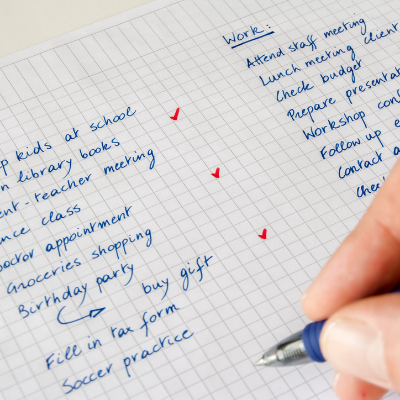 p kids at school
n library books
ent-teacher meeting
nce class
octor appointment
Groceries shopping
Birthday party
buy gift
Fill in tax form
Soccer practice
Work:
Attend staff meeting
Lunch meeting client
Check budget
Prepare presentat
Workshop
Follow up
Contact